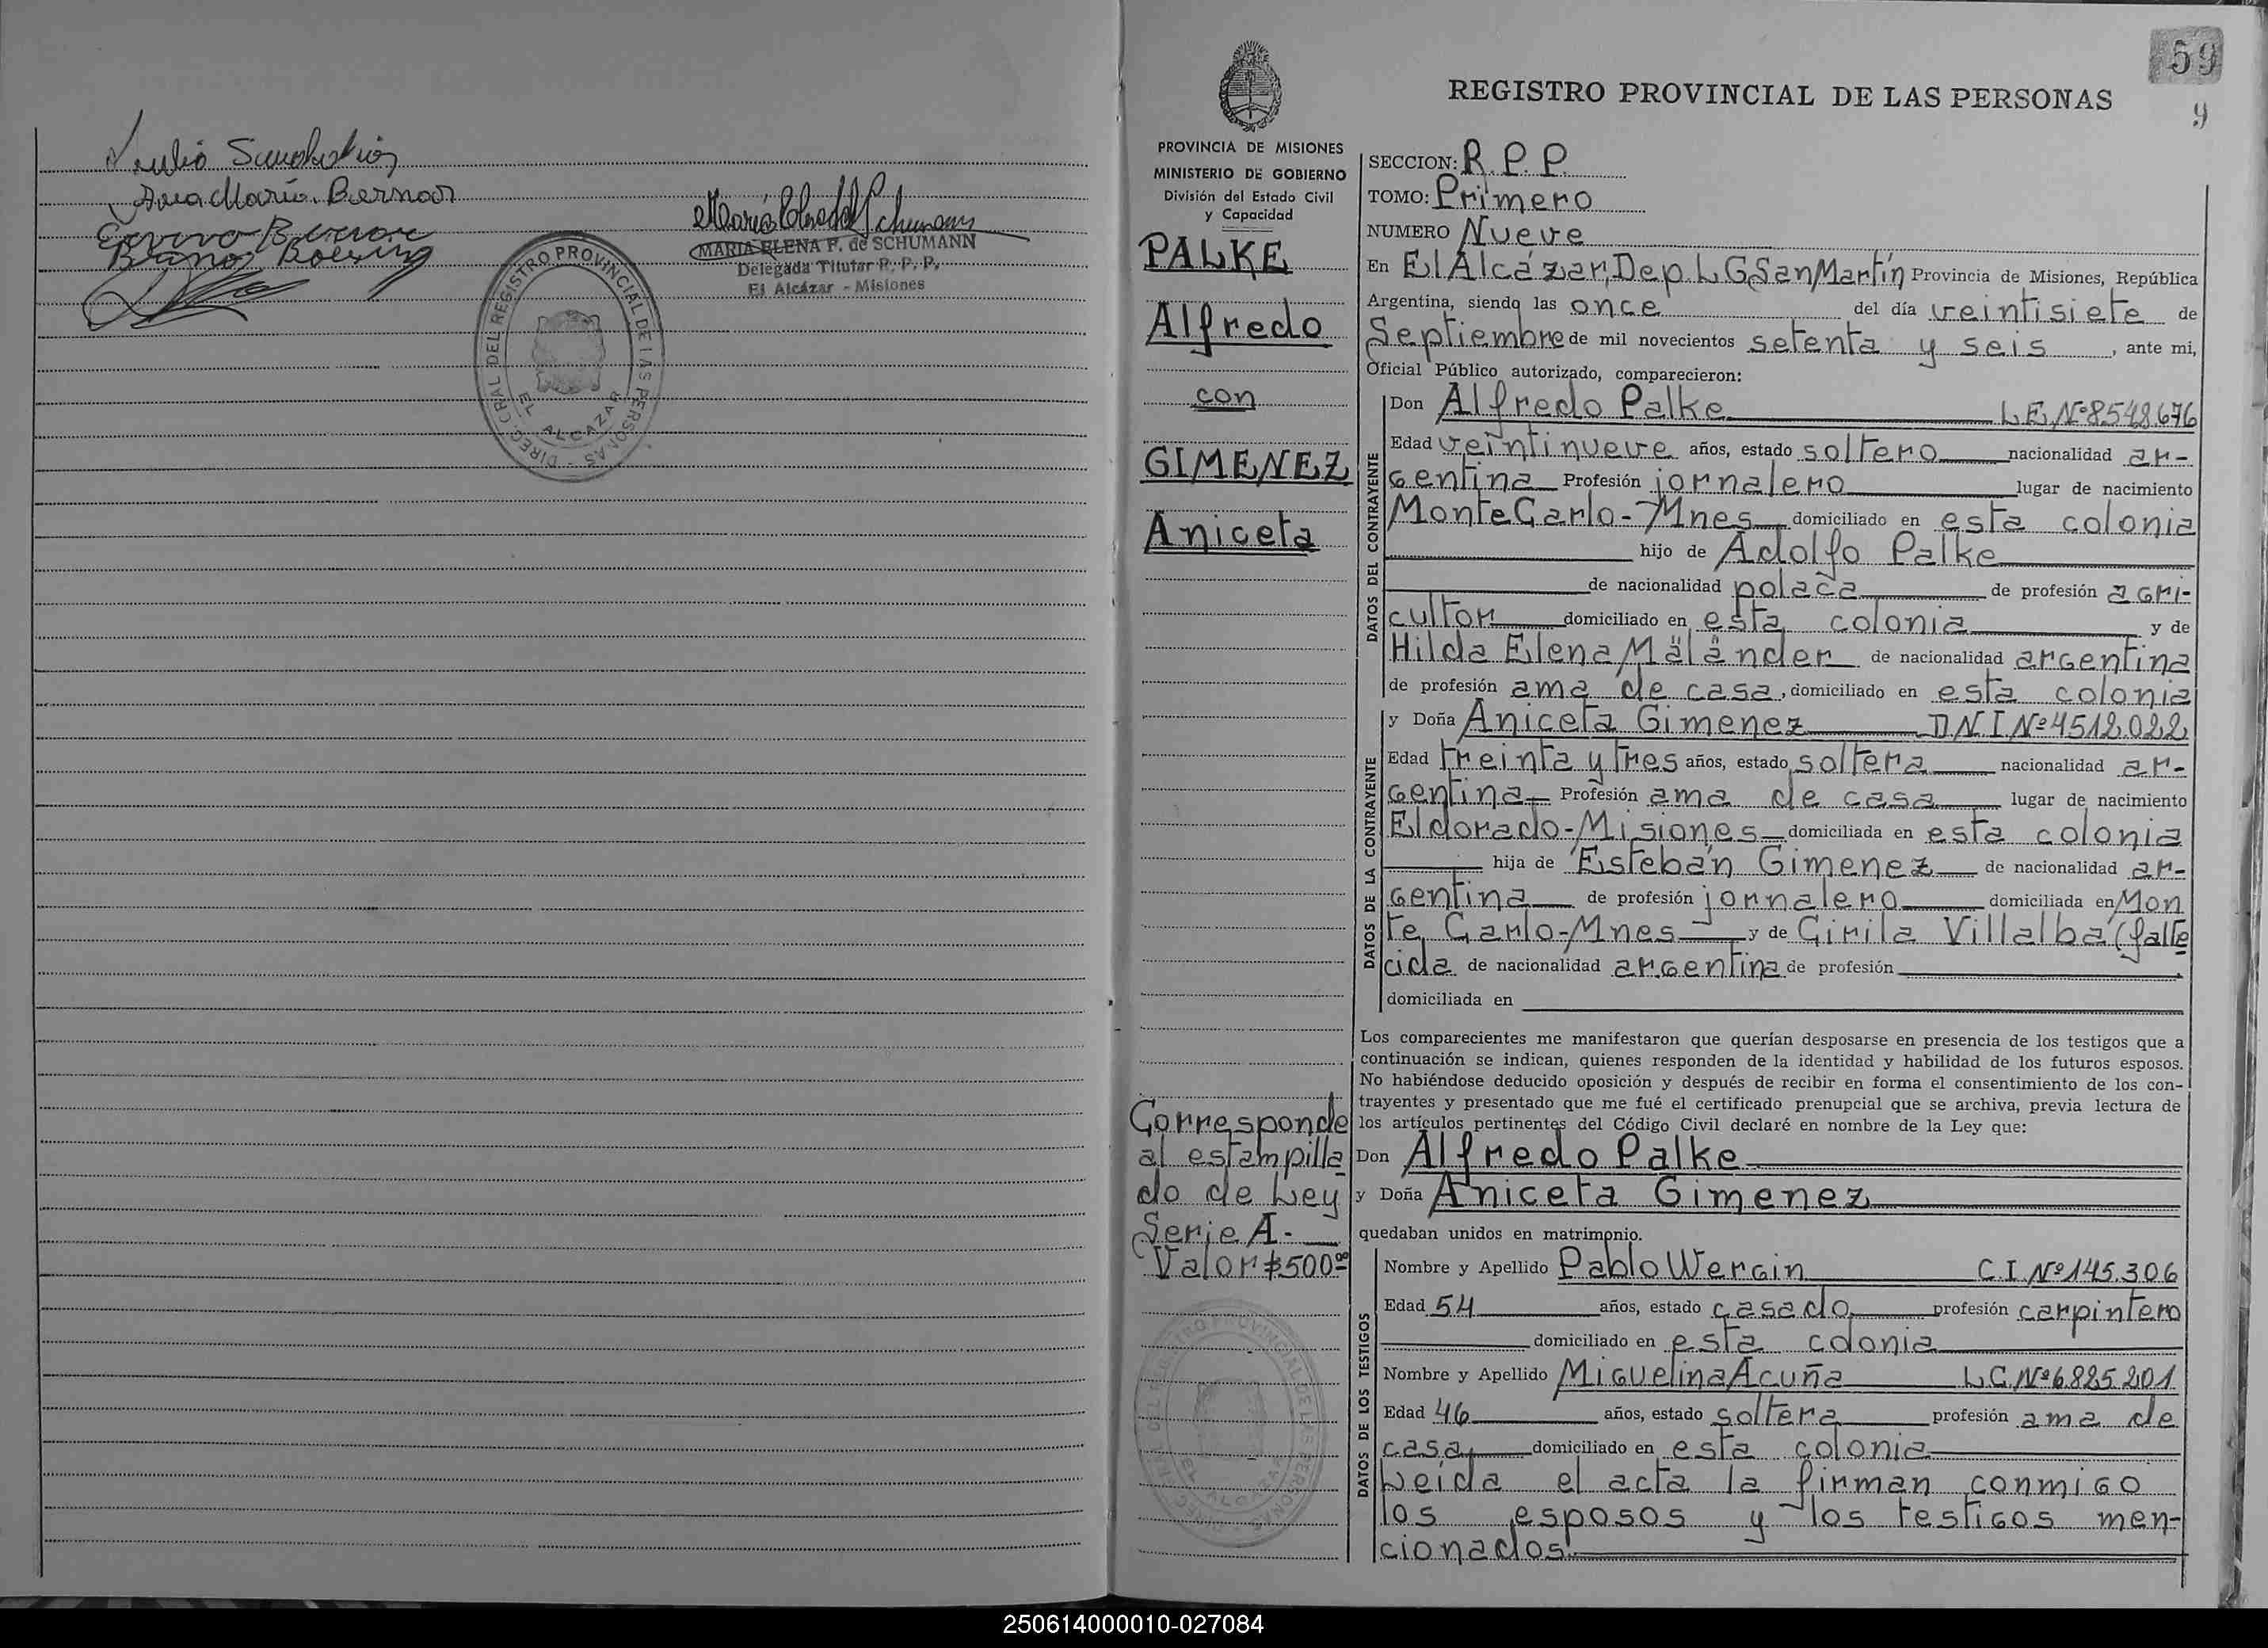 Ana María Bernar
MARIA ELENA F. de SCHUMANN
Delegada Titular R. P. P.
El Alcázar - Misiones
DIREC. GRAL DEL REGISTRO PROVINCIAL DE LAS PERSONAS
EL ALCAZAR
59
9
REGISTRO PROVINCIAL DE LAS PERSONAS
PROVINCIA DE MISIONES
MINISTERIO DE GOBIERNO
División del Estado Civil
y Capacidad
PALKE
Alfredo
con
GIMENEZ
Aniceta
Corresponde
al estampilla
do de Ley
Serie A.
Valor $500.00
SECCION: R. P. P.
TOMO: Primero
NUMERO Nueve
En El Alcázar, Dep. L. G. San Martín Provincia de Misiones, República
Argentina, siendo las once del día veintisiete de
Septiembre de mil novecientos setenta y seis, ante mi,
Oficial Público autorizado, comparecieron:
DATOS DEL CONTRAYENTE
Don Alfredo Palke L.E. Nº 8.548.676
Edad veintinueve años, estado soltero nacionalidad ar-
gentina Profesión jornalero lugar de nacimiento
Monte Carlo-Mnes domiciliado en esta colonia
hijo de Adolfo Palke
de nacionalidad polaca de profesión agri-
cultor domiciliado en esta colonia y de
Hilda Elena Mäländer de nacionalidad argentina
de profesión ama de casa, domiciliado en esta colonia
DATOS DE LA CONTRAYENTE
y Doña Aniceta Gimenez D.N.I. Nº 4.512.022
Edad treinta y tres años, estado soltera nacionalidad ar-
gentina Profesión ama de casa lugar de nacimiento
Eldorado-Misiones domiciliada en esta colonia
hija de Esteban Gimenez de nacionalidad ar-
gentina de profesión jornalero domiciliada en Mon
te Carlo-Mnes y de Cirila Villalba (falle
cida de nacionalidad argentina de profesión
domiciliada en
Los comparecientes me manifestaron que querían desposarse en presencia de los testigos que a
continuación se indican, quienes responden de la identidad y habilidad de los futuros esposos.
No habiéndose deducido oposición y después de recibir en forma el consentimiento de los con-
trayentes y presentado que me fué el certificado prenupcial que se archiva, previa lectura de
los artículos pertinentes del Código Civil declaré en nombre de la Ley que:
Don Alfredo Palke
y Doña Aniceta Gimenez
quedaban unidos en matrimonio.
DATOS DE LOS TESTIGOS
Nombre y Apellido Pablo Wergin C.I. Nº 145.306
Edad 54 años, estado casado profesión carpintero
domiciliado en esta colonia
Nombre y Apellido Miguelina Acuña L.C. Nº 6.825.201
Edad 46 años, estado soltera profesión ama de
casa domiciliado en esta colonia
Leída el acta la firman conmigo
los esposos y los testigos men-
cionados.
250614000010-027084